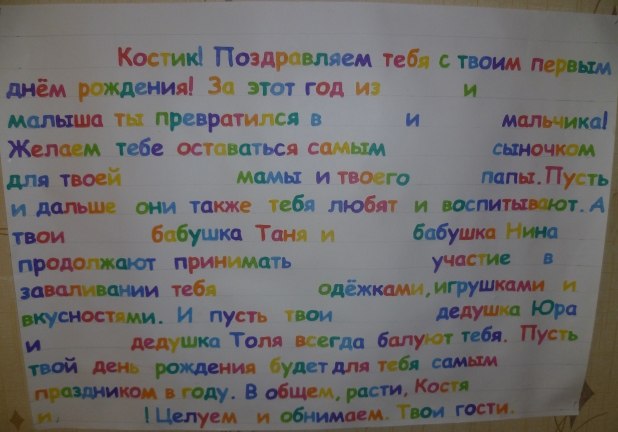 Костик! Поздравляем тебя с твоим первым
днём рождения! За этот год из и
малыша ты превратился в и мальчика!
Желаем тебе оставаться самым сыночком
для твоей мамы и твоего папы. Пусть
и дальше они также тебя любят и воспитывают. А
твои бабушка Таня и бабушка Нина
продолжают принимать участие в
заваливании тебя одёжками, игрушками и
вкусностями. И пусть твои дедушка Юра
и дедушка Толя всегда балуют тебя. Пусть
твой день рождения будет для тебя самым
праздником в году. В общем, расти, Костя
и. ! Целуем и обнимаем. Твои гости.